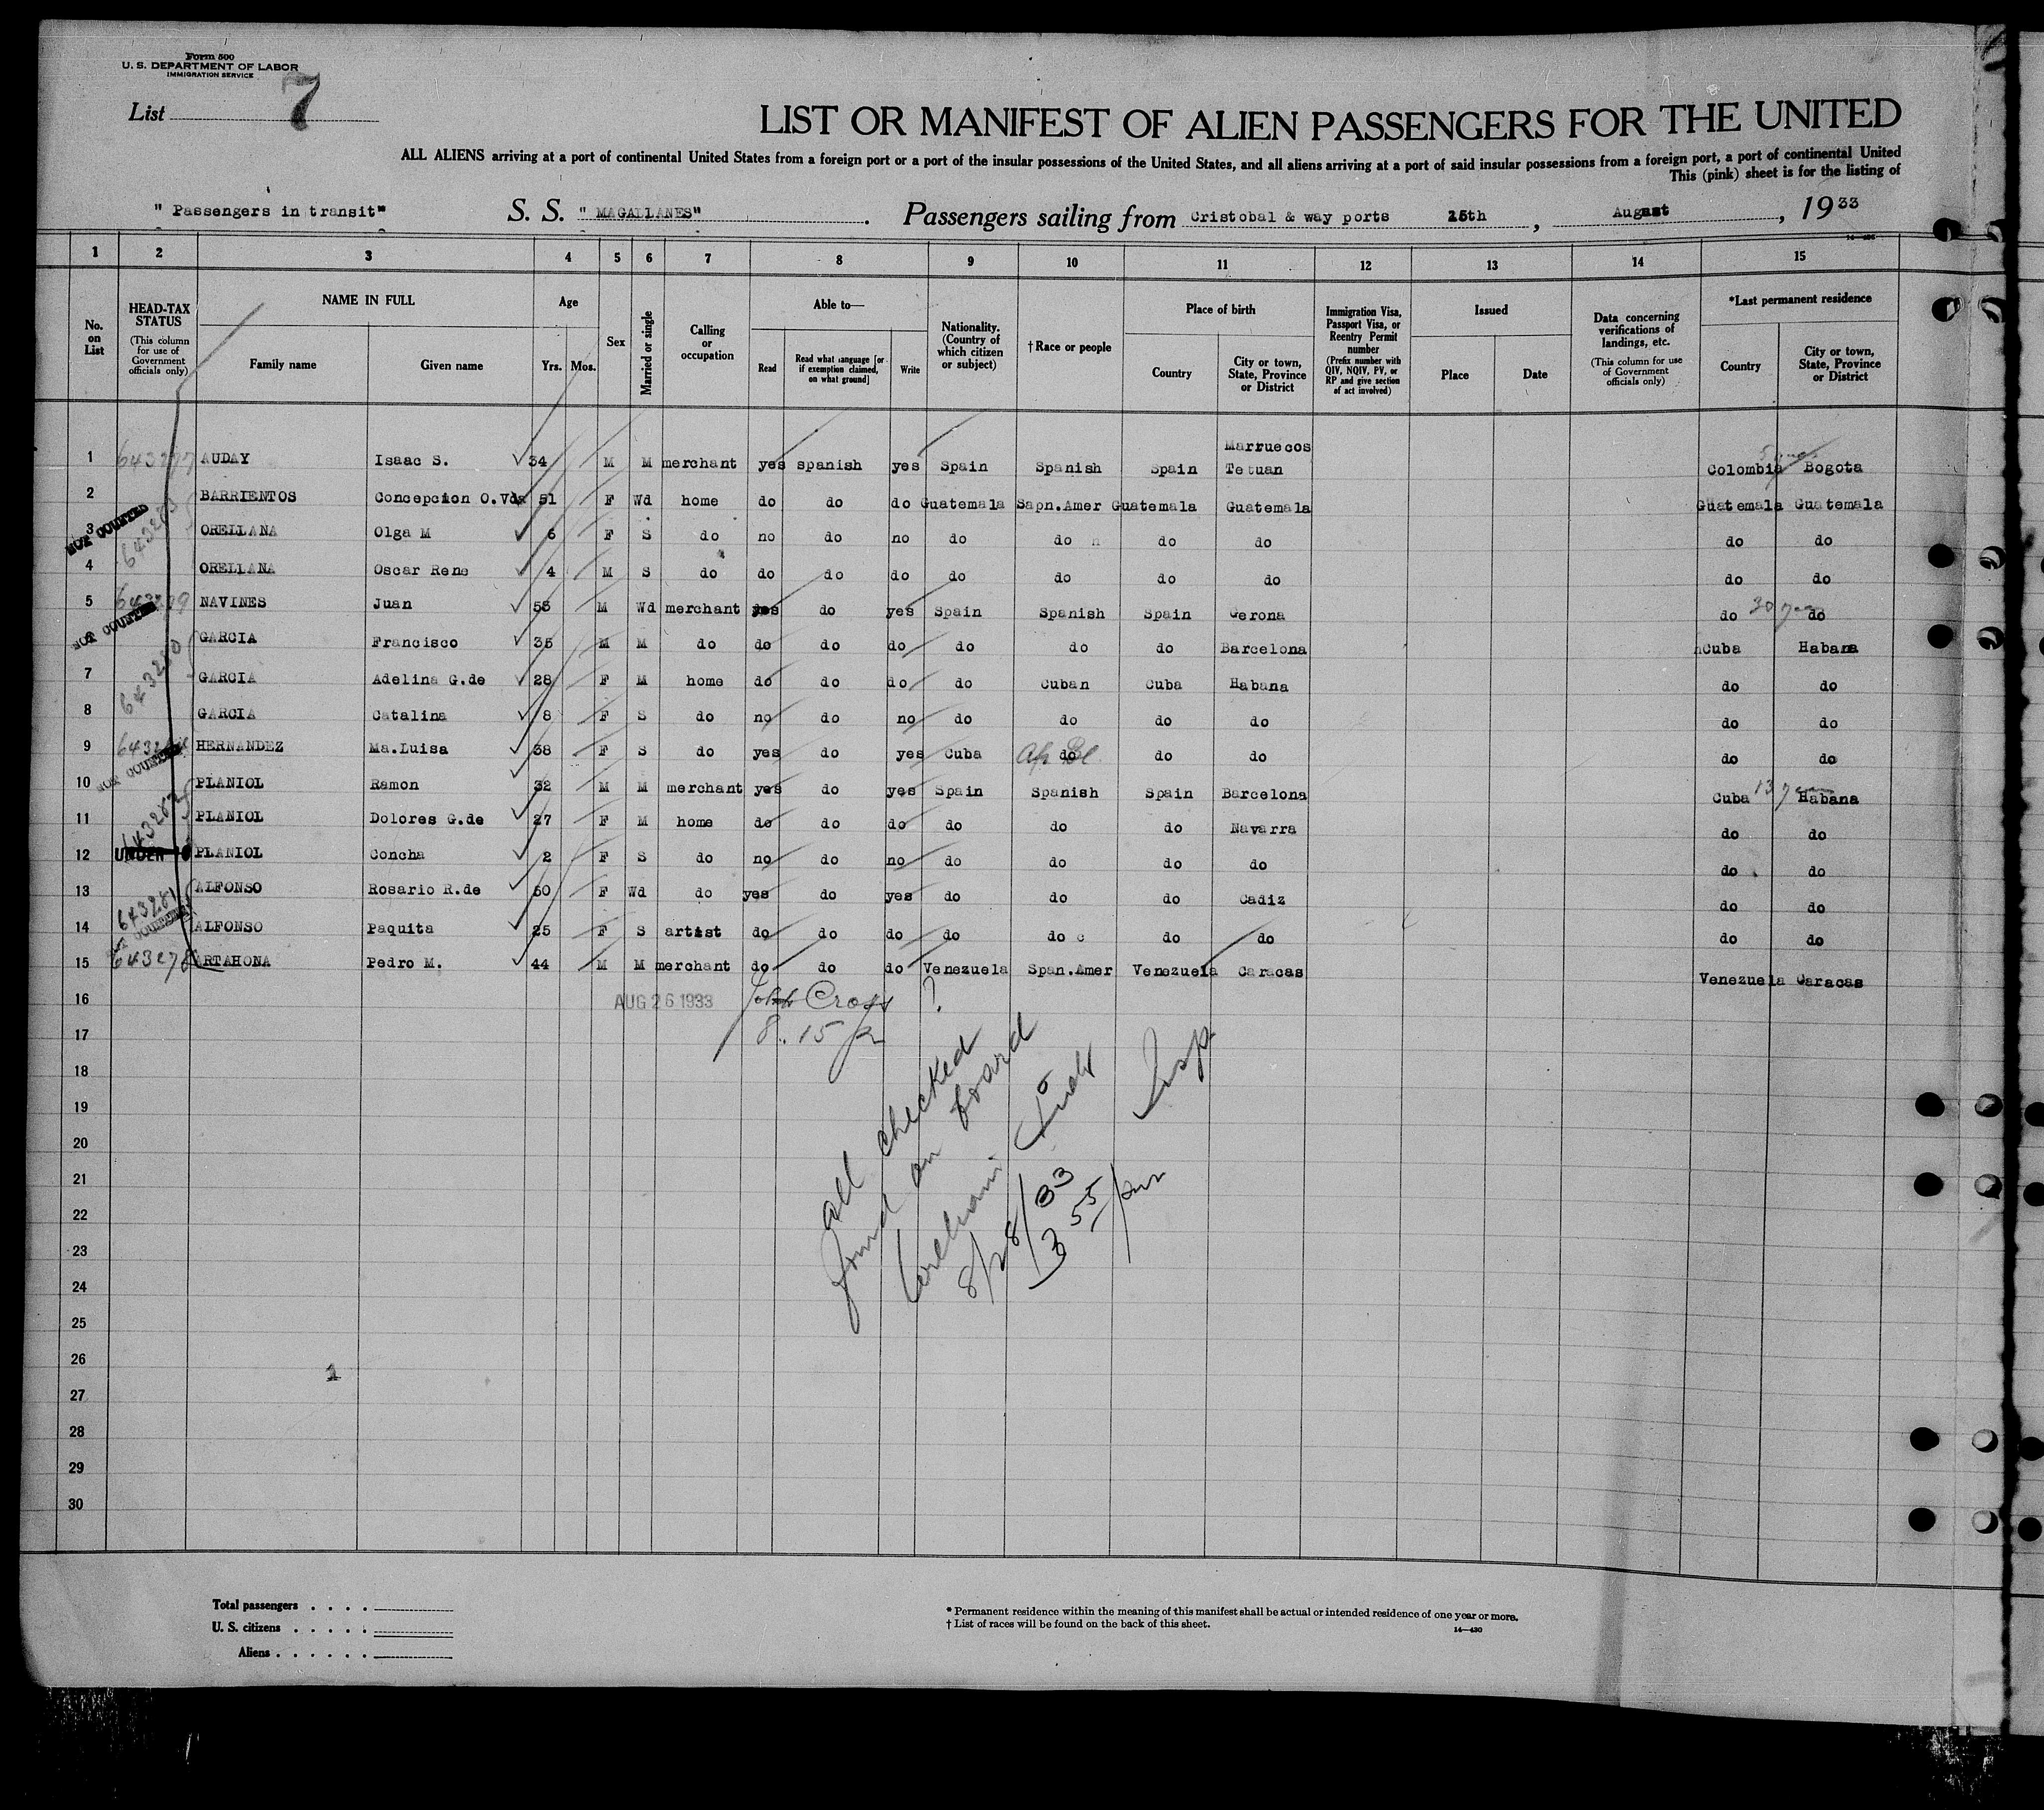 Form 500
U. S. DEPARTMENT OF LABOR
IMMIGRATION SERVICE
List 7
LIST OR MANIFEST OF ALIEN PASSENGERS FOR THE UNITED
ALL ALIENS arriving at a port of continental United States from a foreign port or a port of the insular possessions of the United States, and all aliens arriving at a port of said insular possessions from a foreign port, a port of continental United
This (pink) sheet is for the listing of
" Passengers in transit" S. S. " MAGALLANES" . Passengers sailing from Cristobal & way ports 15th , August , 1933
1 2 3 4 5 6 7 8 9 10 11 12 13 14 15
No. on List
HEAD-TAX STATUS (This column for use of Government officials only)
NAME IN FULL
Family name Given name
Age
Yrs. Mos.
Sex
Married or single
Calling or occupation
Able to—
Read
Read what language [or if exemption claimed, on what ground]
Write
Nationality. (Country of which citizen or subject)
†Race or people
Place of birth
Country
City or town, State, Province or District
Immigration Visa, Passport Visa, or Reentry Permit number (Prefix number with QIV, NQIV, PV, or RP and give section of act involved)
Issued
Place Date
Data concerning verifications of landings, etc. (This column for use of Government officials only)
*Last permanent residence
Country
City or town, State, Province or District
Marruecos
1 643277 AUDAY Isaac S. 34 M M merchant yes spanish yes Spain Spanish Spain Tetuan Colombia Bogota
2 BARRIENTOS Concepcion O.Vda 51 F Wd home do do do Guatemala Sapn.Amer Guatemala Guatemala Guatemala Guatemala
NOT COUNTED
3 ORELLANA Olga M 6 F S do no do no do do do do do do
4 ORELLANA Oscar Rene 4 M S do do do do do do do do do do
5 NAVINES Juan 55 M Wd merchant yes do yes Spain Spanish Spain Gerona do 30 years do
NOT COUNTED
6 GARCIA Francisco 35 M M do do do do do do do Barcelona Cuba Habana
643280
7 GARCIA Adelina G.de 28 F M home do do do do Cuban Cuba Habana do do
8 GARCIA Catalina 8 F S do no do no do do do do do do
9 HERNANDEZ Ma.Luisa 38 F S do yes do yes Cuba do Af. Bl do do do do
NOT COUNTED
10 PLANIOL Ramon 32 M M merchant yes do yes Spain Spanish Spain Barcelona Cuba 13 years Habana
11 PLANIOL Dolores G.de 27 F M home do do do do do do Navarra do do
12 UNDER 16 PLANIOL Concha 2 F S do no do no do do do do do do
13 643281 ALFONSO Rosario R.de 50 F Wd do yes do yes do do do Cadiz do do
NOT COUNTED
14 ALFONSO Paquita 25 F S artist do do do do do do do do do
15 643278 ARTAHONA Pedro M. 44 M M merchant do do do Venezuela Span.Amer Venezuela Caracas Venezuela Caracas
16 AUG 26 1933 John Cross ?
17 8.15 p
18
19
20
21
22
23
24
25
26
27
28
29
30
all checked
found on board
William Insp
8/28/33
3 55 pm
1
Total passengers . . . .
U. S. citizens . . . . .
Aliens . . . . . .
* Permanent residence within the meaning of this manifest shall be actual or intended residence of one year or more.
† List of races will be found on the back of this sheet.
14—430